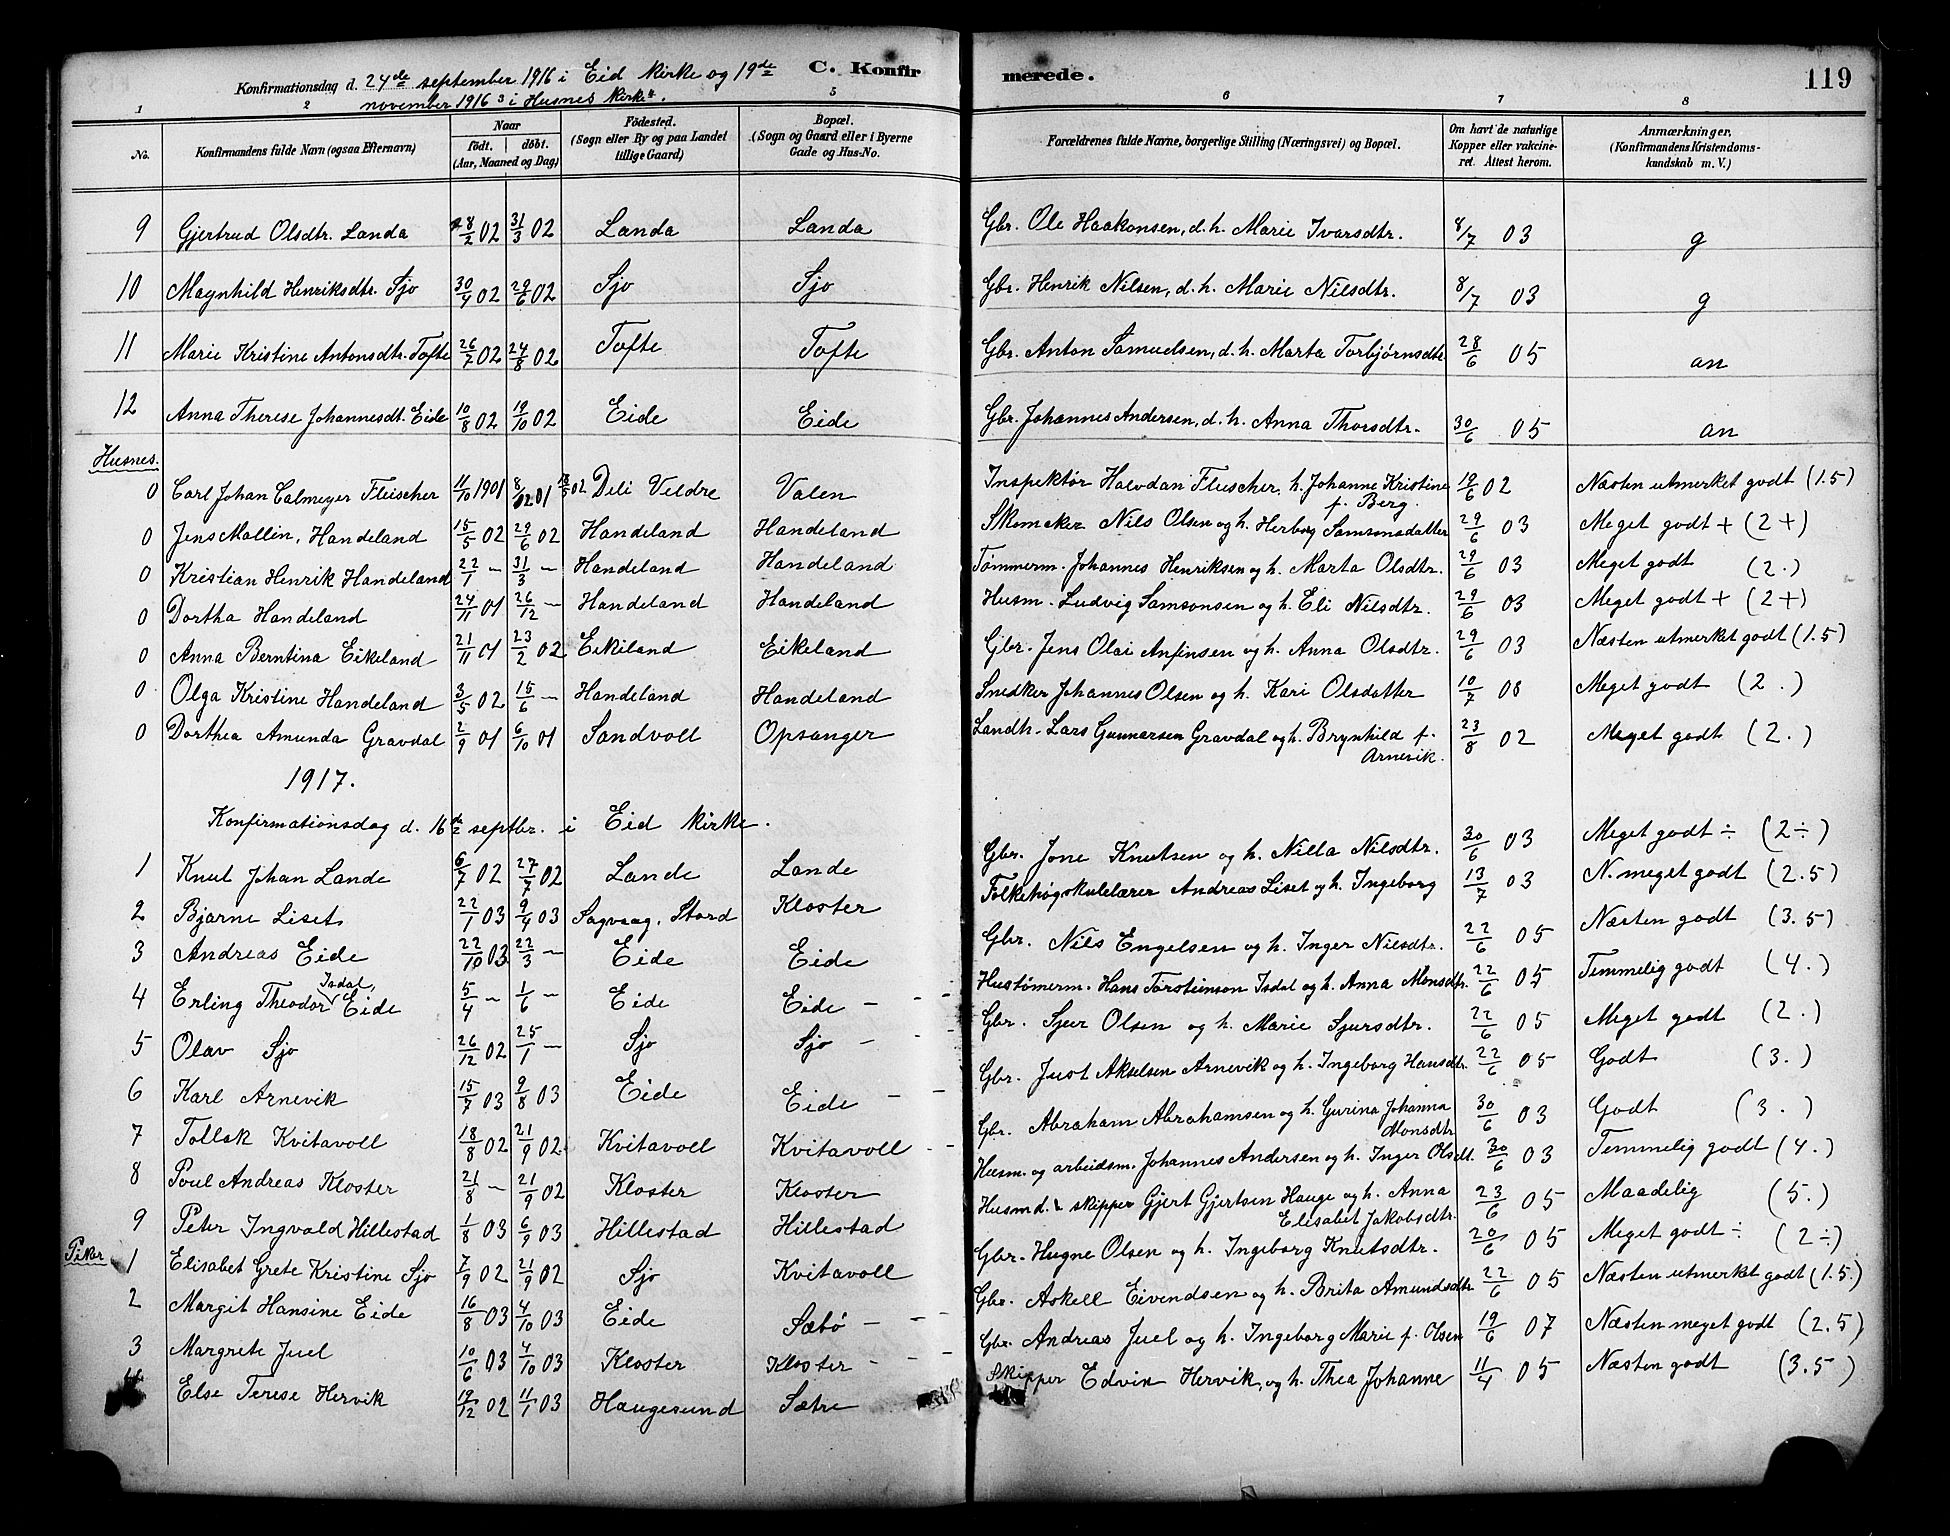 Konfirmationsdag d. 24de september 1916 i Eid kirke og 19de C. Konfirmerede. 119
november 1916 i Husnes kirke.
1 2 3 4 5 6 7 8
No. Konfirmandens fulde Navn (ogsaa Efternavn) Naar født. døbt. (Aar, Maaned og Dag) Fødested. (Sogn eller By og paa Landet tillige Gaard) Bopæl. (Sogn og Gaard eller i Byerne Gade og Hus-No. Forældrenes fulde Navne, borgerlige Stilling (Næringsvei) og Bopæl. Om havt de naturlige Kopper eller vakcineret. Attest herom. Anmærkninger. (Konfirmandens Kristendomskundskab m. V.)
9 Gjertrud Olsdtr. Landa 8/2 02 31/3 02 Landa Landa Gbr. Ole Haakonsen, d. h. Marie Ivarsdtr. 8/7 03 g
10 Magnhild Henriksdtr. Sjo 30/4 02 29/6 02 Sjo Sjo Gbr. Henrik Nilsen, d. h. Marie Nilsdtr. 8/7 03 g
11 Marie Kristine Antonsdtr. Tofte 26/7 02 24/8 02 Tofte Tofte Gbr. Anton Samuelsen, d. h. Marta Torbjørnsdtr. 28/6 05 an
12 Anna Therese Johannesdt. Eide 10/8 02 19/10 02 Eide Eide Gbr. Johannes Andersen, d. h. Anna Thorsdtr. 30/6 05 an
Husnes.
0 Carl Johan Calmeyer Fleischer 11/10 1901 Deli Veldre Valen Inspektør Halvdan Fleischer, h. Johanne Kristine f. Berg. 19/6 02 Næsten utmerket godt (1.5)
0 Jens Mallin, Handeland 15/5 02 29/6 02 Handeland Handeland Skomaker Nils Olsen og h. Herborg Samsonsdatter 29/6 03 Meget godt + (2+)
0 Kristian Henrik Handeland 22/1 - 31/3 - Handeland Handeland Tømmerm. Johannes Henriksen og h. Marta Olsdtr. 29/6 03 Meget godt (2.)
0 Dortha Handeland 24/11 01 26/12 - Handeland Handeland Husm. Ludvig Samsonsen og h. Eli Nilsdtr. 29/6 03 Meget godt + (2+)
0 Anna Berntina Eikeland 21/11 01 23/2 02 Eikeland Eikeland Gbr. Jens Olai Anfinsen og h. Anna Olsdtr. 29/6 03 Næsten utmerket godt (1.5)
0 Olga Kristine Handeland 3/5 02 15/6 - Handeland Handeland Snedker Johannes Olsen og h. Kari Olsdatter 10/7 08 Meget godt (2.)
0 Dorthea Amunda Gravdal 2/9 01 6/10 01 Sandvoll Opsanger Landh. Lars Gunnarsen Gravdal og h. Brynhild f. Arnevik. 23/8 02 Meget godt (2.)
1917.
Konfirmationsdag d. 16de septbr. i Eid kirke.
1 Knut Johan Lande 6/7 02 27/7 02 Lande Lande Gbr. Jone Knutsen og h. Nilla Nilsdtr. 30/6 03 Meget godt ÷ (2÷)
2 Bjarne Liset 22/1 03 9/4 03 Sagvaag, Stord Kloster Folkehøgskulelærer Andreas Liset og h. Ingeborg 13/7 03 N. meget godt (2.5)
3 Andreas Eide 22/10 03 22/3 - Eide Eide Gbr. Nils Engelsen og h. Inger Nilsdtr. 22/6 05 Næsten godt (3.5)
4 Erling Theodor Isdal, Eide 5/4 - 1/6 - Eide Eide - - Hustømerm. Hans Torsteinson Isdal og h. Anna Monsdtr. 22/6 05 Temmelig godt (4.)
5 Olav Sjo 26/12 02 25/1 - Sjo Sjo - - Gbr. Sjur Olsen og h. Marie Sjursdtr. 22/6 05 Meget godt (2.)
6 Karl Arnevik 15/7 03 9/8 03 Eide Eide - - Gbr. Just Akselsen Arnevik og h. Ingeborg Hansdtr. 22/6 05 Godt (3.)
7 Tollak Kvitavoll 18/8 02 21/9 02 Kvitavoll Kvitavoll - Gbr. Abraham Abrahamsen og h. Gurina Johanna Monsdtr. 30/6 03 Godt (3.)
8 Poul Andreas Kloster 21/8 - 21/9 02 Kloster Kloster Husm. og arbeidsm. Johannes Andersen og h. Inger Olsdt. 30/6 03 Temmelig godt (4.)
9 Peter Ingvald Hillestad 1/8 03 6/9 03 Hillestad Hillestad Husmd. & skipper Gjert Gjertsen Hauge og h. Anna Elisabet Jakobsdtr. 23/6 05 Maadelig (5.)
Piker
1 Elisabet Grete Kristine Sjo 7/9 02 21/9 02 Sjo Kvitavoll Gbr. Hugne Olsen og h. Ingeborg Knutsdtr. 20/6 05 Meget godt ÷ (2÷)
2 Margit Hansine Eide 16/8 03 4/10 03 Eide Sæbø - - Gbr. Askell Eivendsen og h. Brita Amundsdtr 22/6 05 Næsten utmerket godt (1.5.)
3 Margrete Juel 10/6 03 4/10 03 Kloster Kloster - - - Gbr. Andreas Juel og h. Ingeborg Marie f. Olsen 19/6 07 Næsten meget godt (2.5)
4 Else Terese Hervik 19/12 02 11/1 03 Haugesund Sætre Skipper Edvin Hervik, og h. Thea Johanne 11/4 05 Næsten godt (3.5)